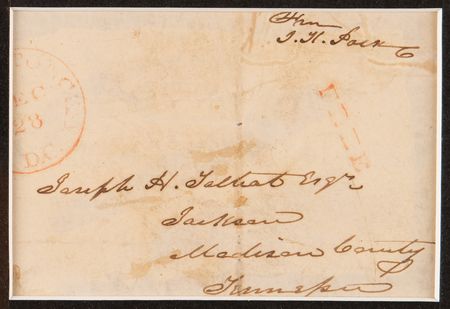 J. K. Polk
EC
28
D.C.
Joseph H. Talbot Esqr
Jackson
Madison County
Tennessee